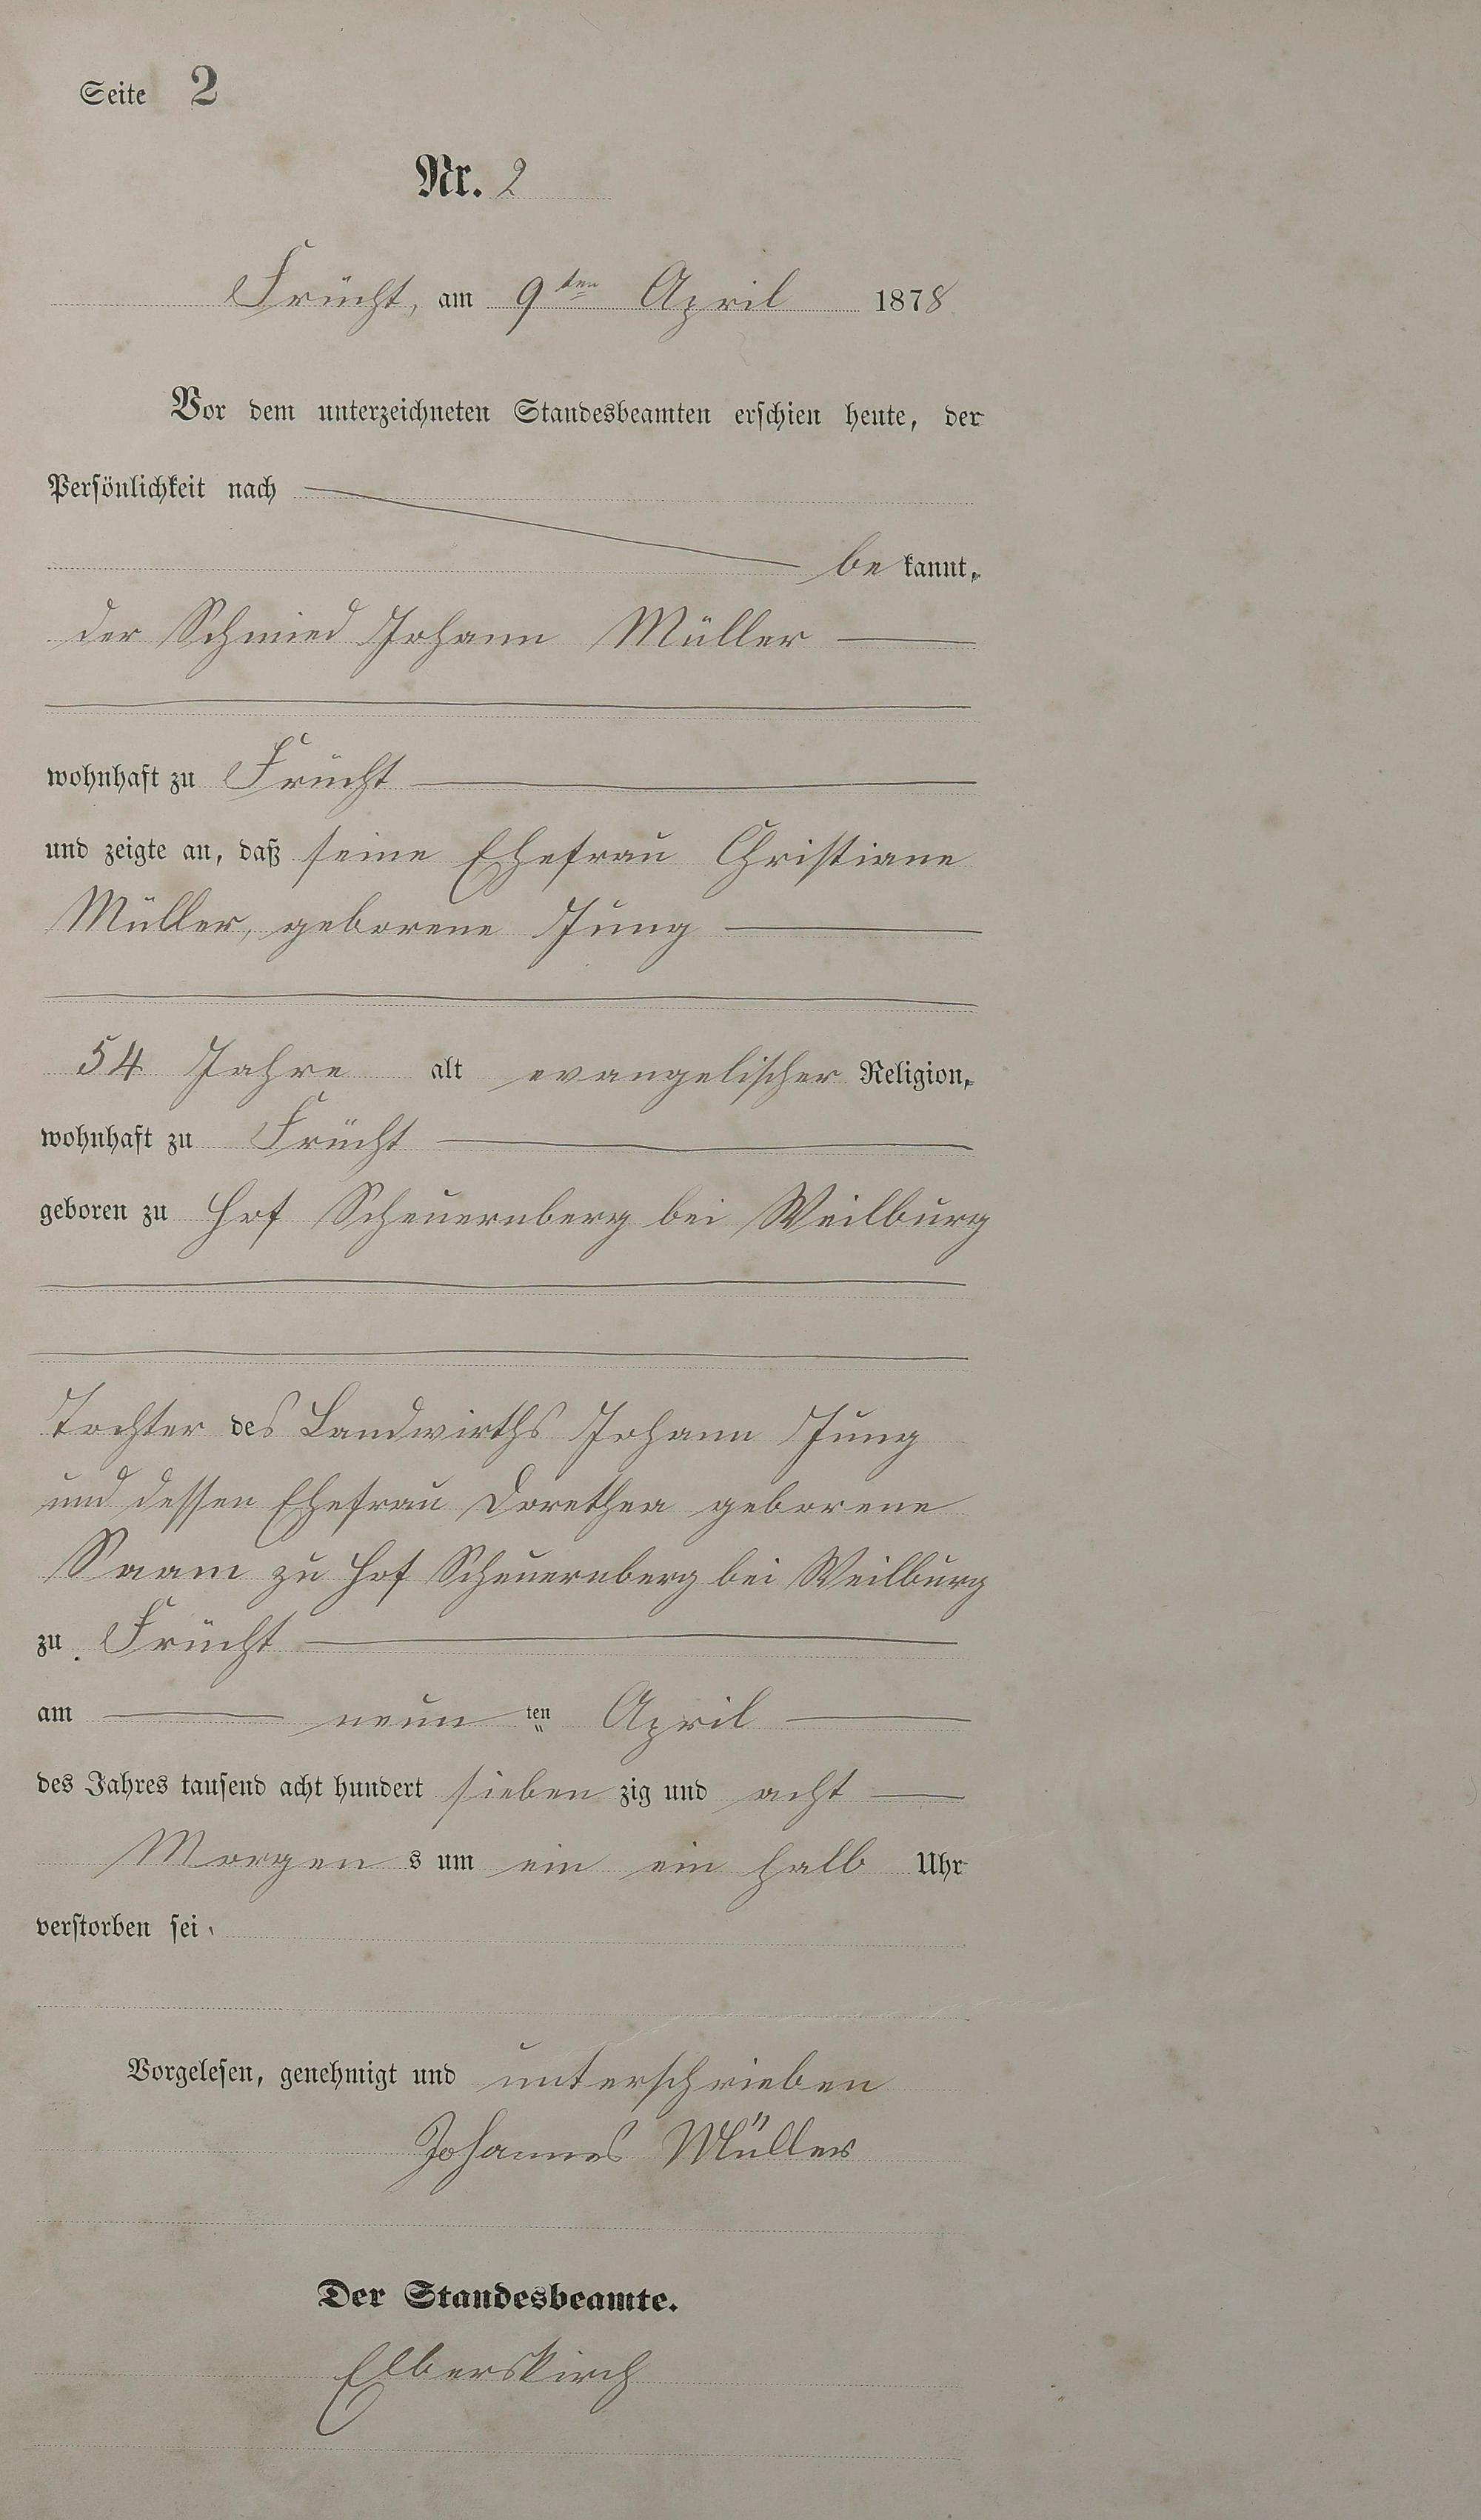 Seite 2
Nr. 2
Frücht, am 9ten April 1878
Vor dem unterzeichneten Standesbeamten erschien heute, der
Persönlichkeit nach
be kannt,
der Schmied Johann Müller
wohnhaft zu Frücht
und zeigte an, daß seine Ehefrau Christiane
Müller, geborene Jung
54 Jahre alt evangelischer Religion,
wohnhaft zu Frücht
geboren zu Hof Scheuernberg bei Weilburg
Tochter des Landwirths Johann Jung
und dessen Ehefrau Dorethea geborene
Saam zu Hof Scheuernberg bei Weilburg
zu Frücht
am neun ten April
des Jahres tausend acht hundert sieben zig und acht
Morgen s um ein ein halb Uhr
verstorben sei.
Vorgelesen, genehmigt und unterschrieben
Johannes Müller
Der Standesbeamte.
Elberskirch